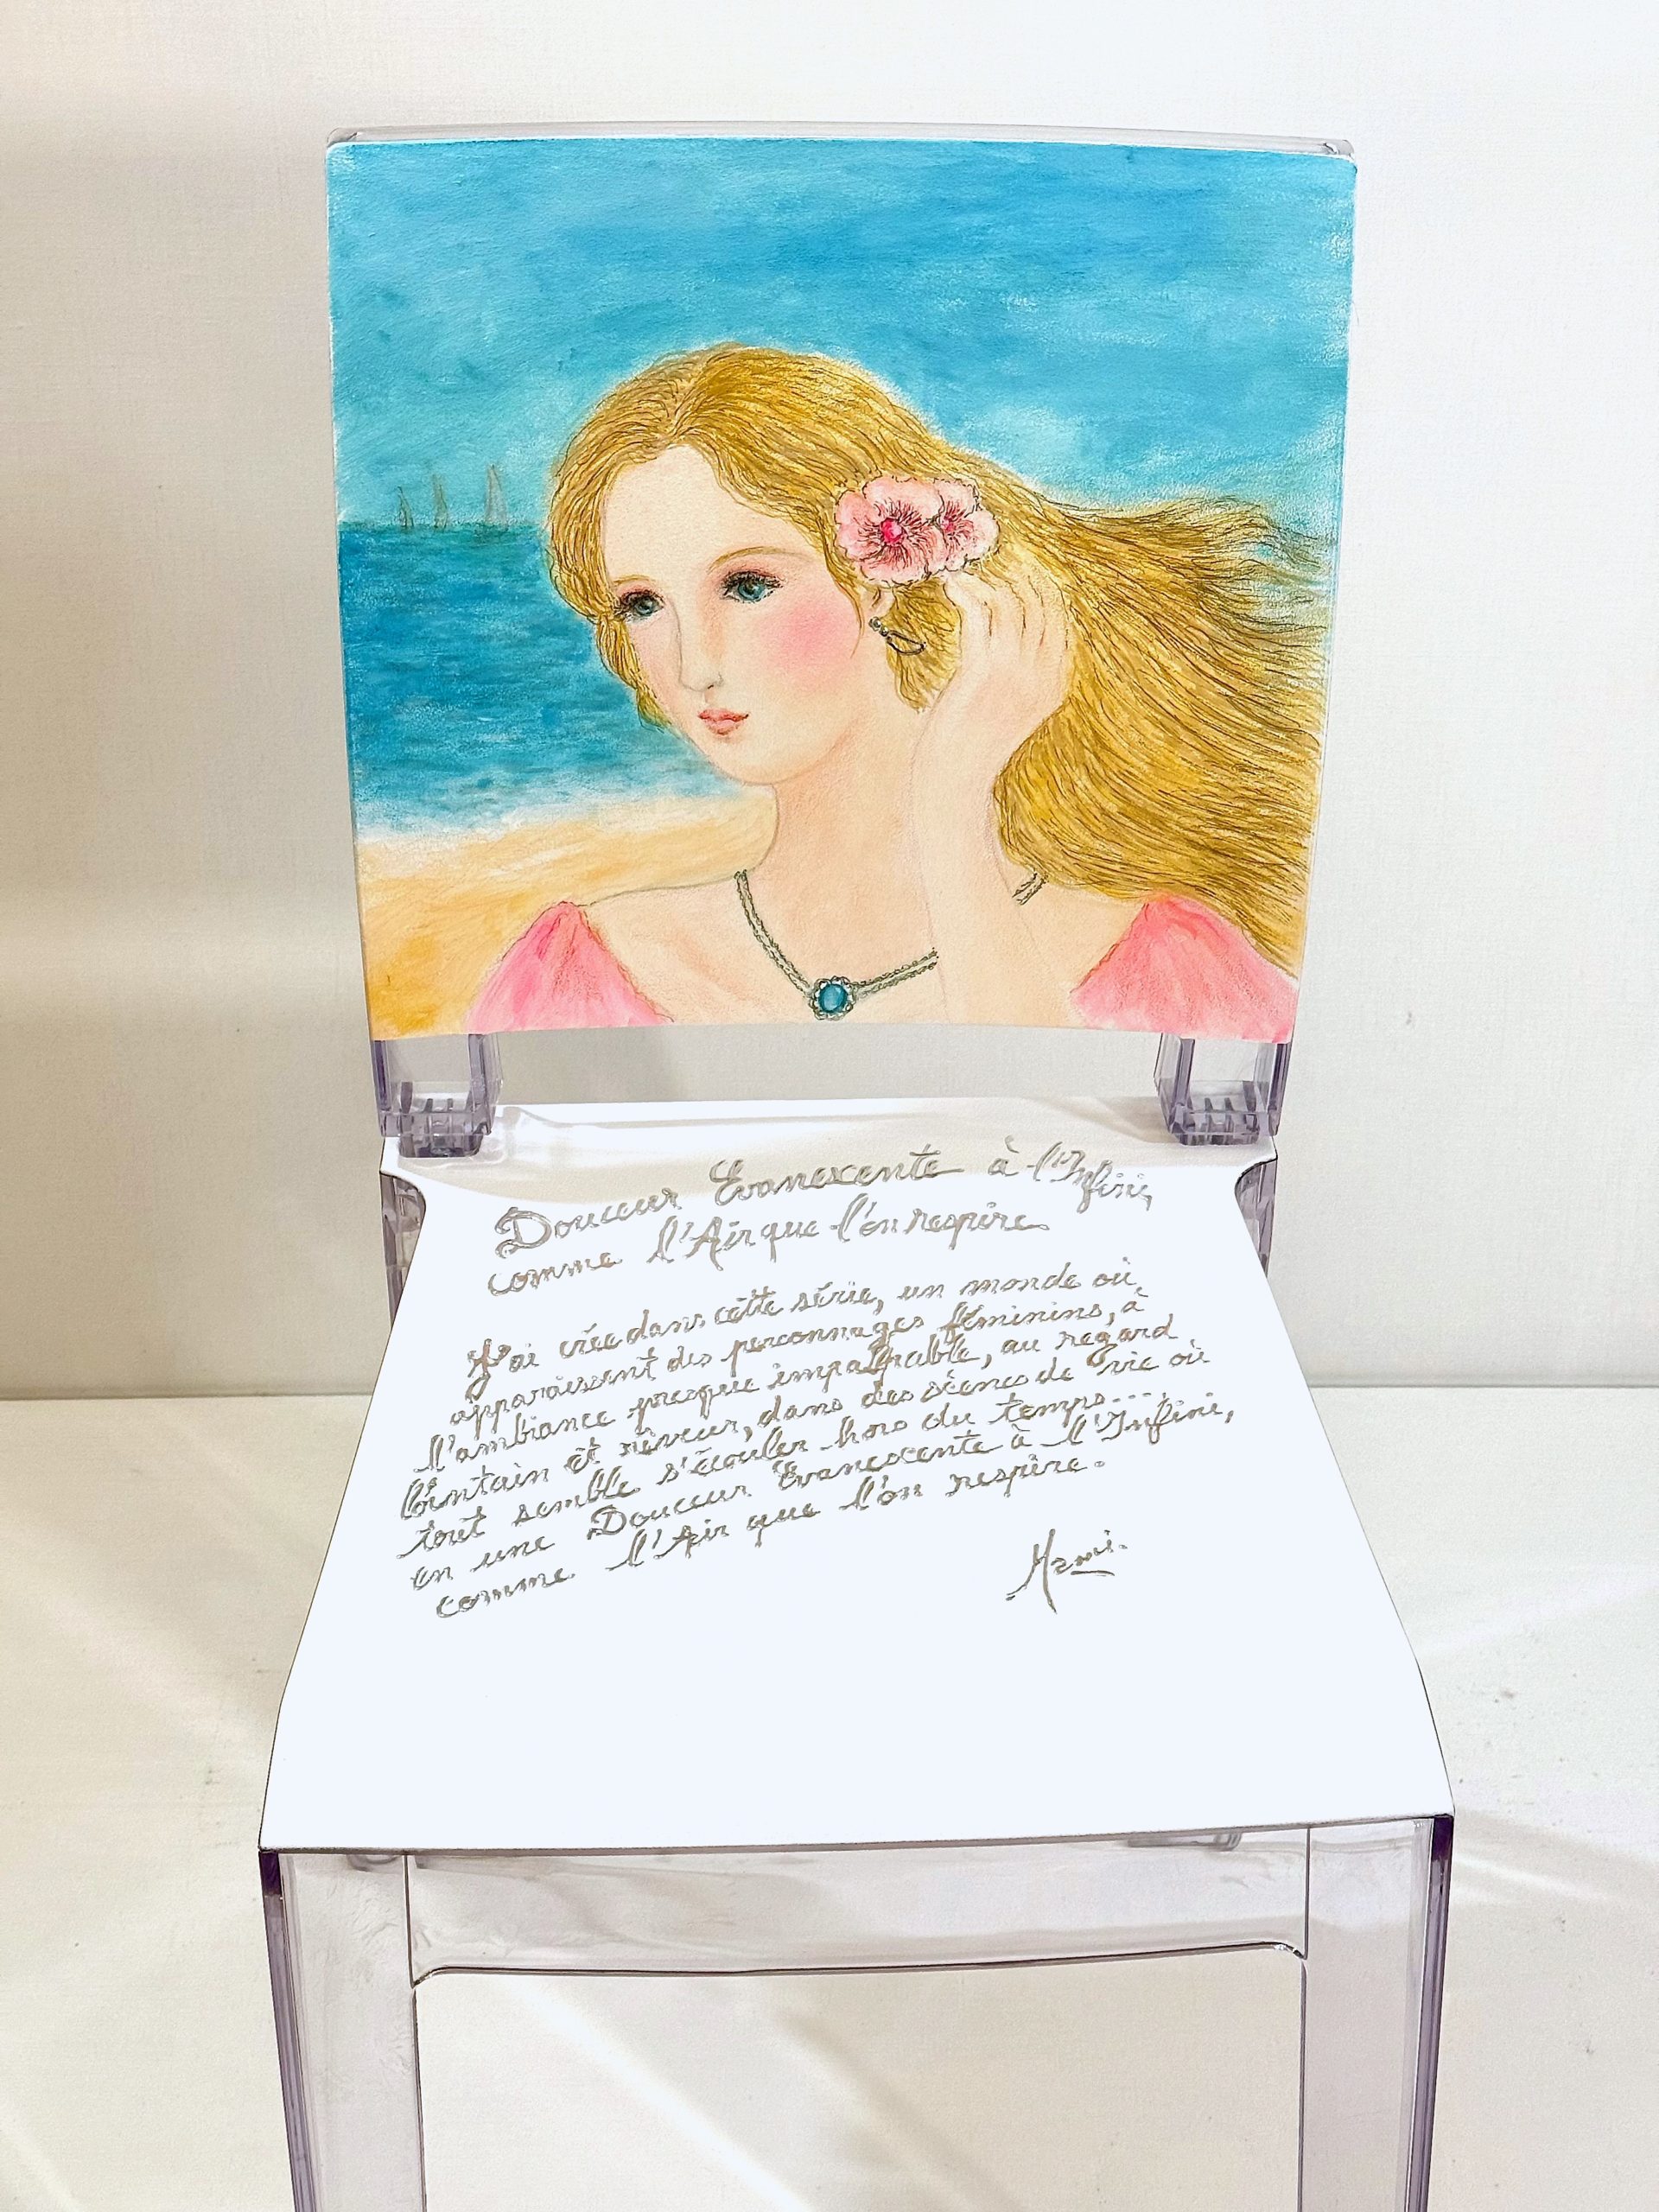 Douceur Evanescente à l'Infini,
comme l'Air que l'on respire
J'ai crée dans cette série, un monde où
apparaissent des personnages féminins, à
l'ambiance presque impalpable, au regard
lointain et rêveur, dans des scènes de vie où
tout semble s'écouler hors du temps...
en une Douceur Evanescente à l'Infini,
comme l'Air que l'on respire.